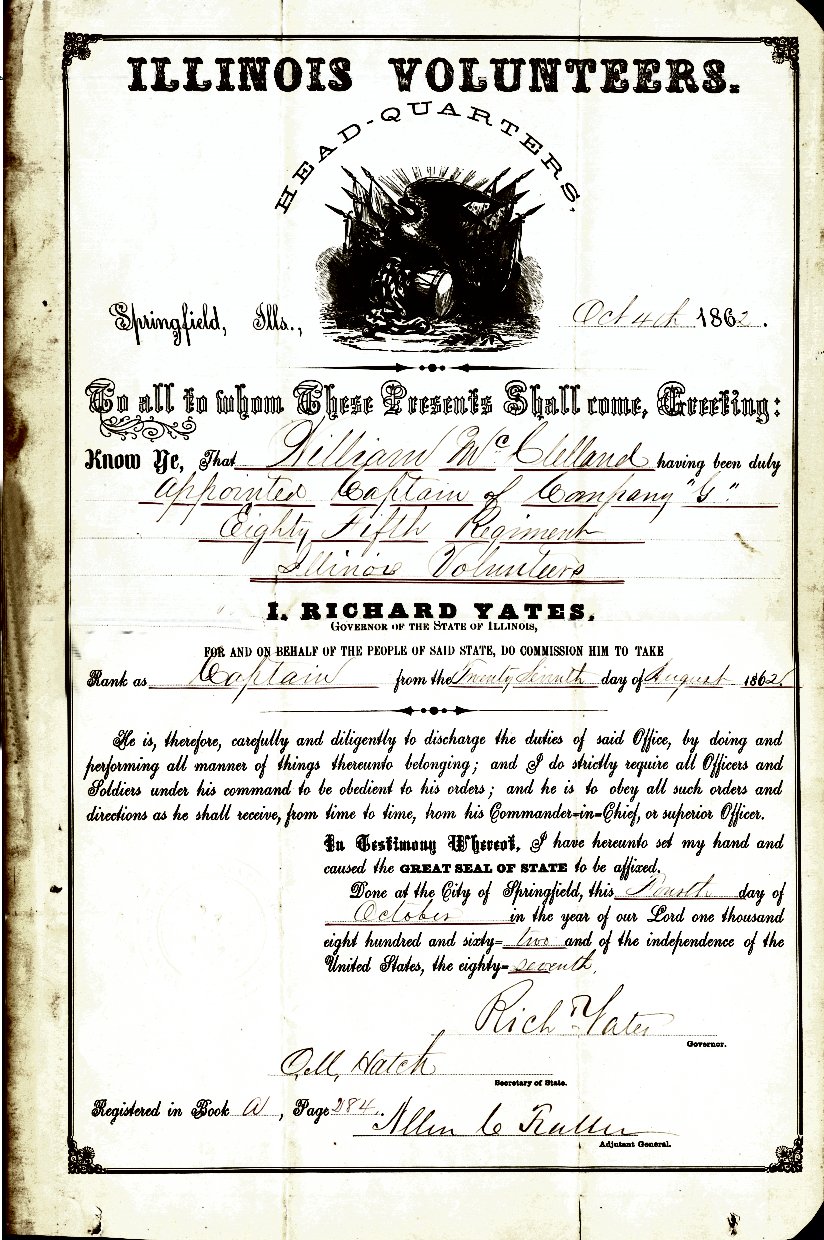 ILLINOIS VOLUNTEERS.
HEAD-QUARTERS,
Springfield, Ills., Oct 4th 1862.
To all to whom These Presents Shall come, Greeting:
Know Ye, That William McClelland having been duly
appointed Captain of Company "G"
Eighty Fifth Regiment
Illinois Volunteers
I, RICHARD YATES,
GOVERNOR OF THE STATE OF ILLINOIS,
FOR AND ON BEHALF OF THE PEOPLE OF SAID STATE, DO COMMISSION HIM TO TAKE
Rank as Captain from the Twenty Seventh day of August 1862.
He is, therefore, carefully and diligently to discharge the duties of said Office, by doing and
performing all manner of things thereunto belonging; and I do strictly require all Officers and
Soldiers under his command to be obedient to his orders; and he is to obey all such orders and
directions as he shall receive, from time to time, from his Commander-in-Chief, or superior Officer.
In Testimony Whereof, I have hereunto set my hand and
caused the GREAT SEAL OF STATE to be affixed.
Done at the City of Springfield, this Fourth day of
October in the year of our Lord one thousand
eight hundred and sixty-two and of the independence of the
United States, the eighty-seventh.
Rich Yates
Governor.
O.M. Hatch
Secretary of State.
Registered in Book A, Page 284.
Allen C Fuller
Adjutant General.